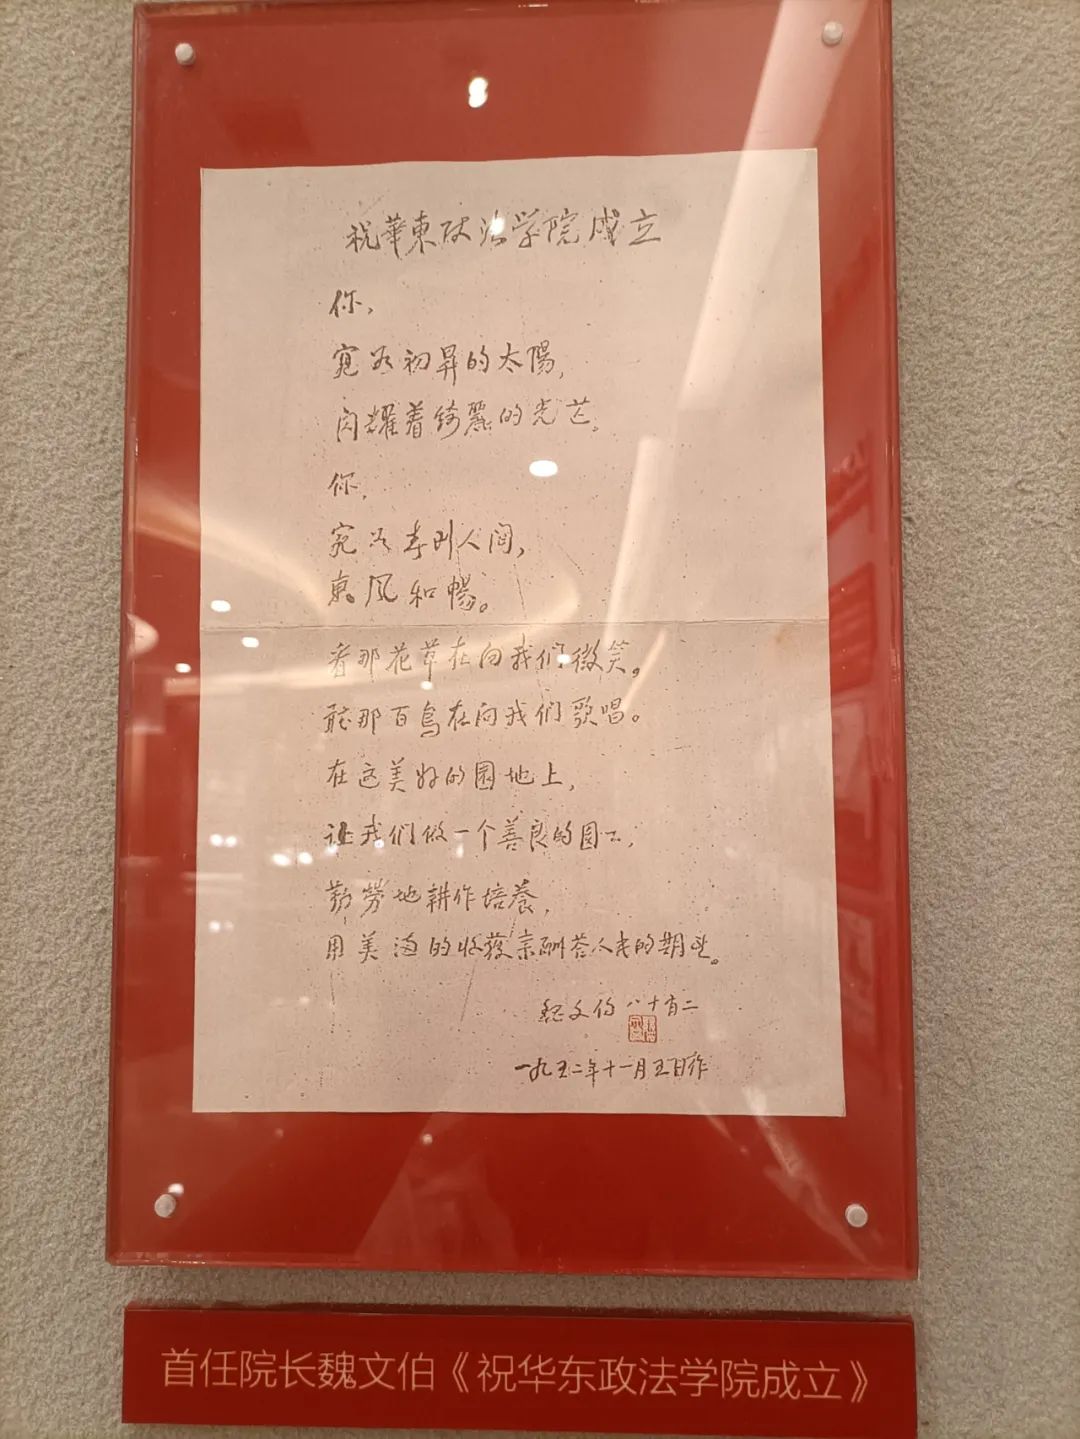 祝華東政法学院成立
你,
宛如初昇的太陽,
闪耀着绮麗的光芒。
你,
宛如春到人间,
東風和暢。
看那花草在向我们微笑。
聽那百鸟在向我们歌唱。
在这美好的园地上,
让我们做一个善良的园工,
勤劳地耕作培養,
用美满的收获来酬答人民的期望。
魏文伯八十有二
一九五二年十一月五日作
首任院长魏文伯《祝华东政法学院成立》